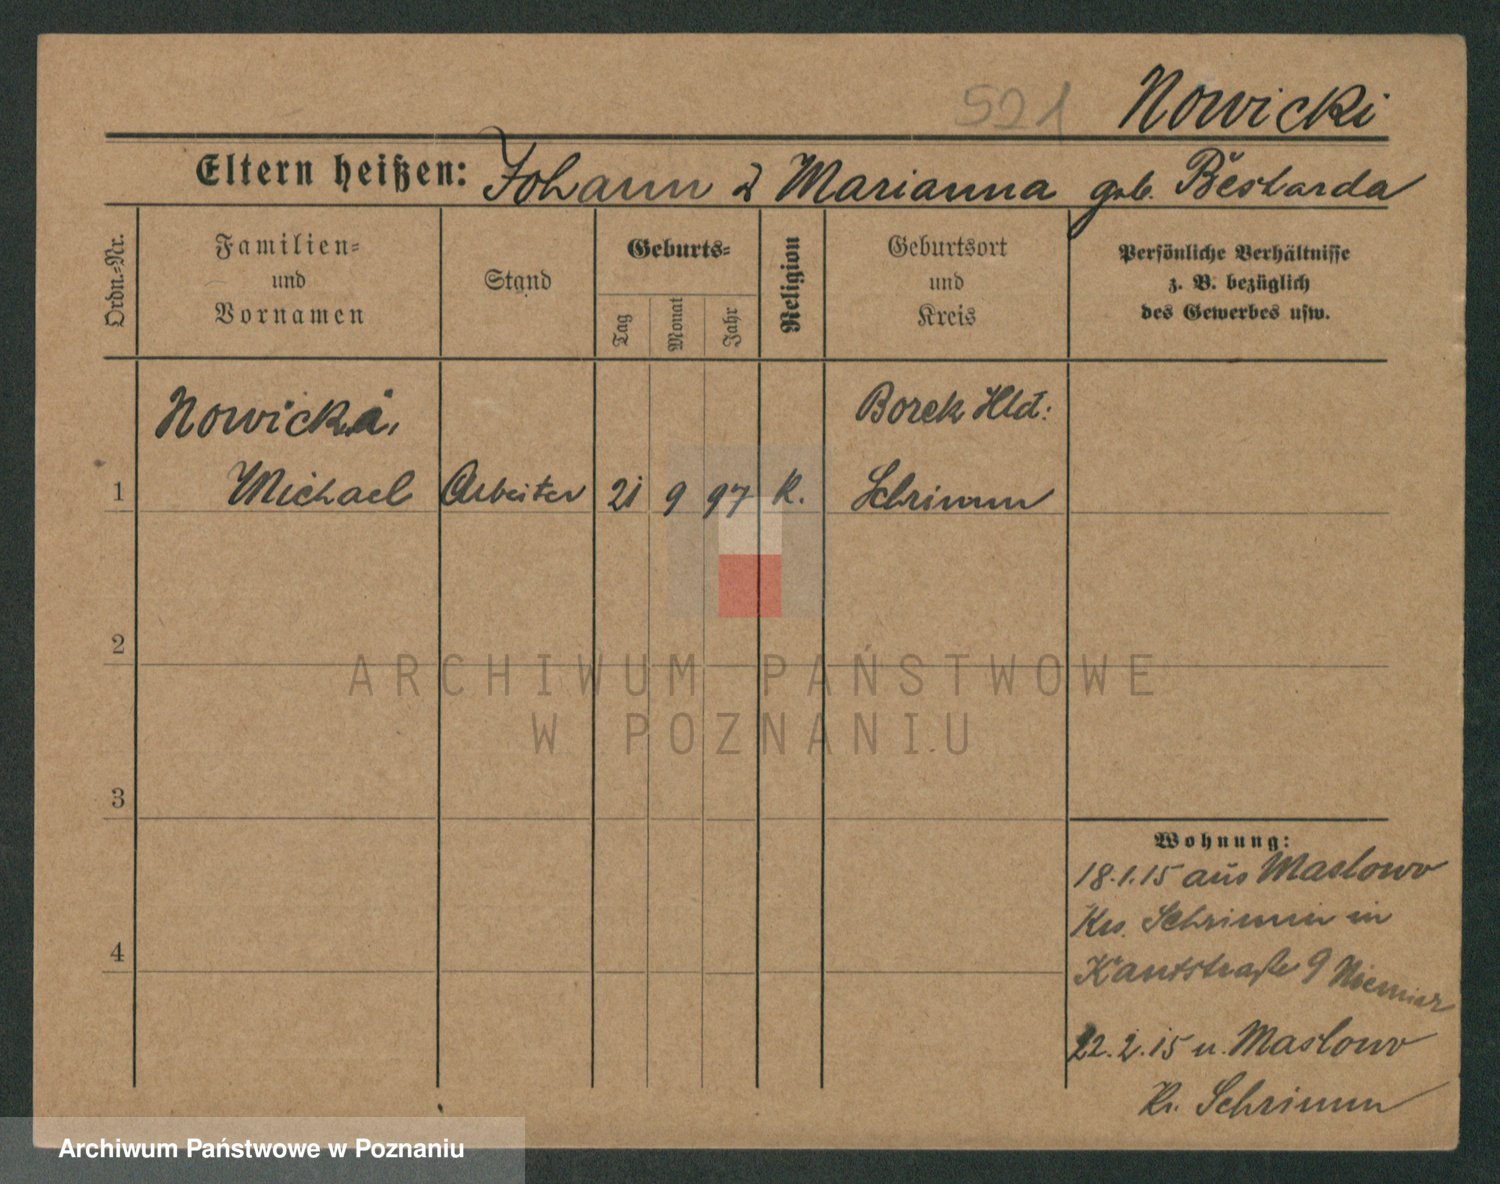 521 Nowicki
Eltern heißen: Johann & Marianna geb. Bestarda
Ordn.-Nr.
Familien-
und
Vornamen
Stand
Geburts-
Tag
Monat
Jahr
Religion
Geburtsort
und
Kreis
Persönliche Verhältnisse
z. B. bezüglich
des Gewerbes usw.
Nowicki,
Borek Hld:
1 Michael Arbeiter 21 9 97 K. Schrimm
2
3
4
Wohnung:
18.1.15 aus Maslowo
Krs. Schrimm in
Kantstraße 9
22.2.15 n. Maslowo
Kr. Schrimm
ARCHIWUM PAŃSTWOWE
W POZNANIU
Archiwum Państwowe w Poznaniu